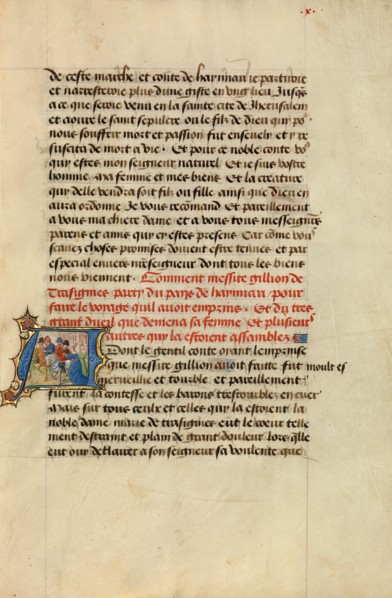 .x.
de ceste marche et conte de haynnau ie partiroie
et narresteroie plus dune giste en vng lieu Jusqs
a ce que seroie venu en la sainte cite de Jherusalem
et trouve le saint sepulcre ou le filz de dieu qui po
nous souffrir mort et passion fut enseuely et y re
suscita de mort a vie . Et pour ce noble conte vo9
quy estes mon seigneur naturel Et ie suis vostre
homme ma femme et mes biens Et la creature
quy delle vendra soit filz ou fille ainsi que dieu en
aura ordonne Je vous recomand Et pareillement
a vous ma chiere dame et a vous tous messeignrs
parens et amis quy cy estes presens Car come vo9
scauez choses promises doiuent estre tenues et par
especial enuers nre seigneur dont tous les biens
nous viennent . Comment messire gillion de
Trasignies party du pays de haynnau pour
faire le voyage quil auoit emprins . Et du tres
grant dueil que demena sa femme Et plusieurs
autres quy la estoient assamblez
Dont le gentil conte oyant lemprise
que messire gillion auoit faitte fut moult es
merueillie et tourble et pareillement
furent la contesse et les barons tres tourblez en cuer
Mais sur tous ceulx et celles quy la estoient la
noble dame marie de trasignies eut le coeur telle
ment destraint et plain de grant douleur lors qlle
eut ouy declairer a son seigneur sa voulente que